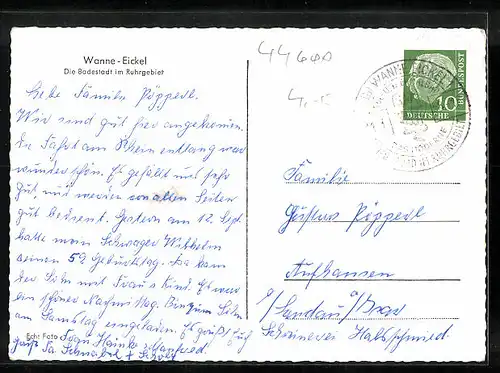 Wanne - Eickel
Die Badestadt im Ruhrgebiet
44600
Liebe Familien Pöpperl.
Wir sind gut hier angekommen.
die Fahrt am Rhein entlang war
wunderschön. Es gefällt uns sehr
gut, und werden von allen Seiten
gut bedient. Gestern am 12. Sept.
hatte mein Schwager Wilhelm
seinen 59 Geburtstag. Da kam
der Sohn mit Frau u Kind. Es war
ein schöner Nachmittag. Bin zum
am Samstag eingeladen. Es grüßt Euch
Echt Foto
Manfred.
Fa. Schnabel +
WANNE-EICKEL
10
DEUTSCHE
BUNDESPOST
Familie
Gustav Pöpperl
Aufhausen
a/
b/Landau / Isar
Schreinerei